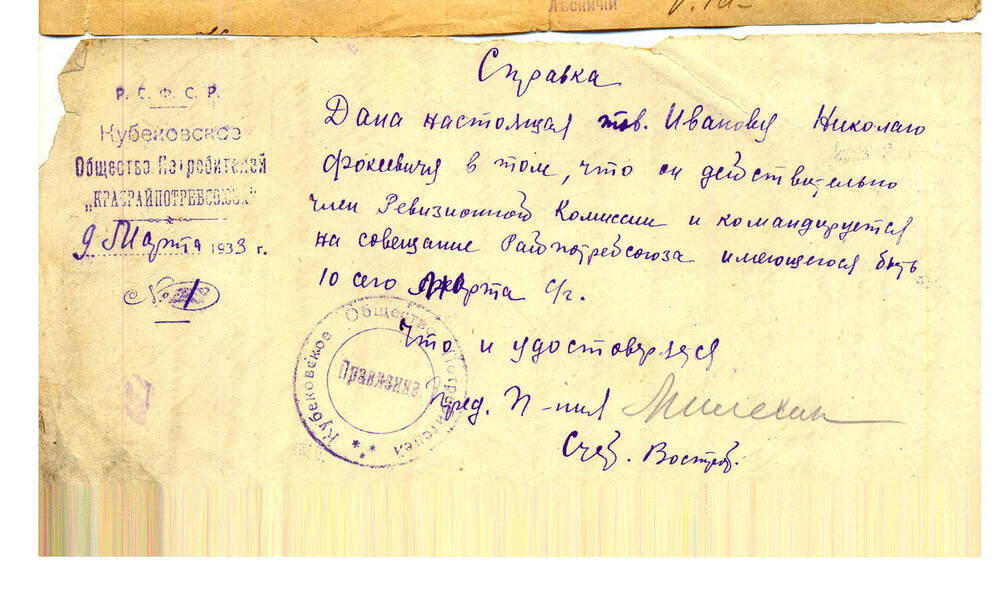 Лесничий
Р. С. Ф. С. Р.
Кубековское
Общество Потребителей
„КРАЙРАЙПОТРЕБСОЮЗА"
9 Марта 1933 г.
№ 1
Справка
Дана настоящая тов. Иванову Николаю
Фокеевичу в том, что он действительно
член Ревизионной Комиссии и командируется
на совещание Райпотребсоюза имеющегося быть
10 сего марта с/г.
Что и удостоверяется
Пред. П-ния
Счет. Востров.
Кубековское Общество Потребителей
Правление